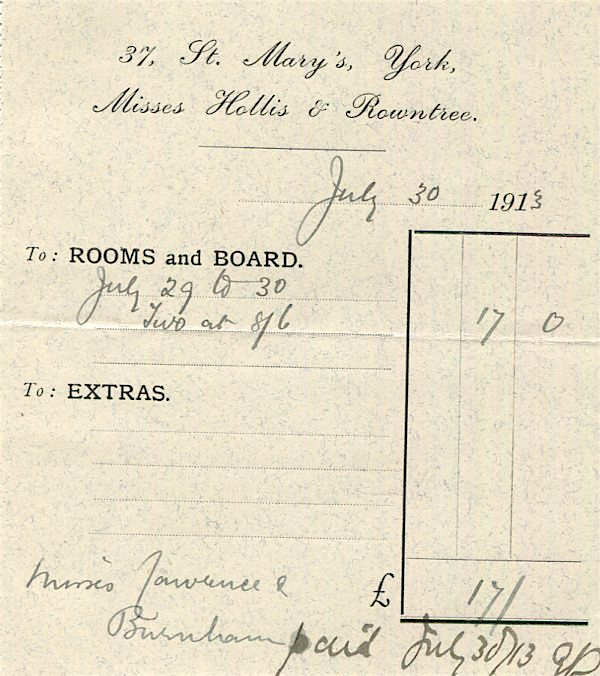 37, St. Mary's, York,
Misses Hollis & Rowntree.
July 30 1913
To: ROOMS and BOARD.
July 29 to 30
Two at 8/6 17 0
To: EXTRAS.
Misses Lawrence &
£ 17/
Burnham paid July 30/13